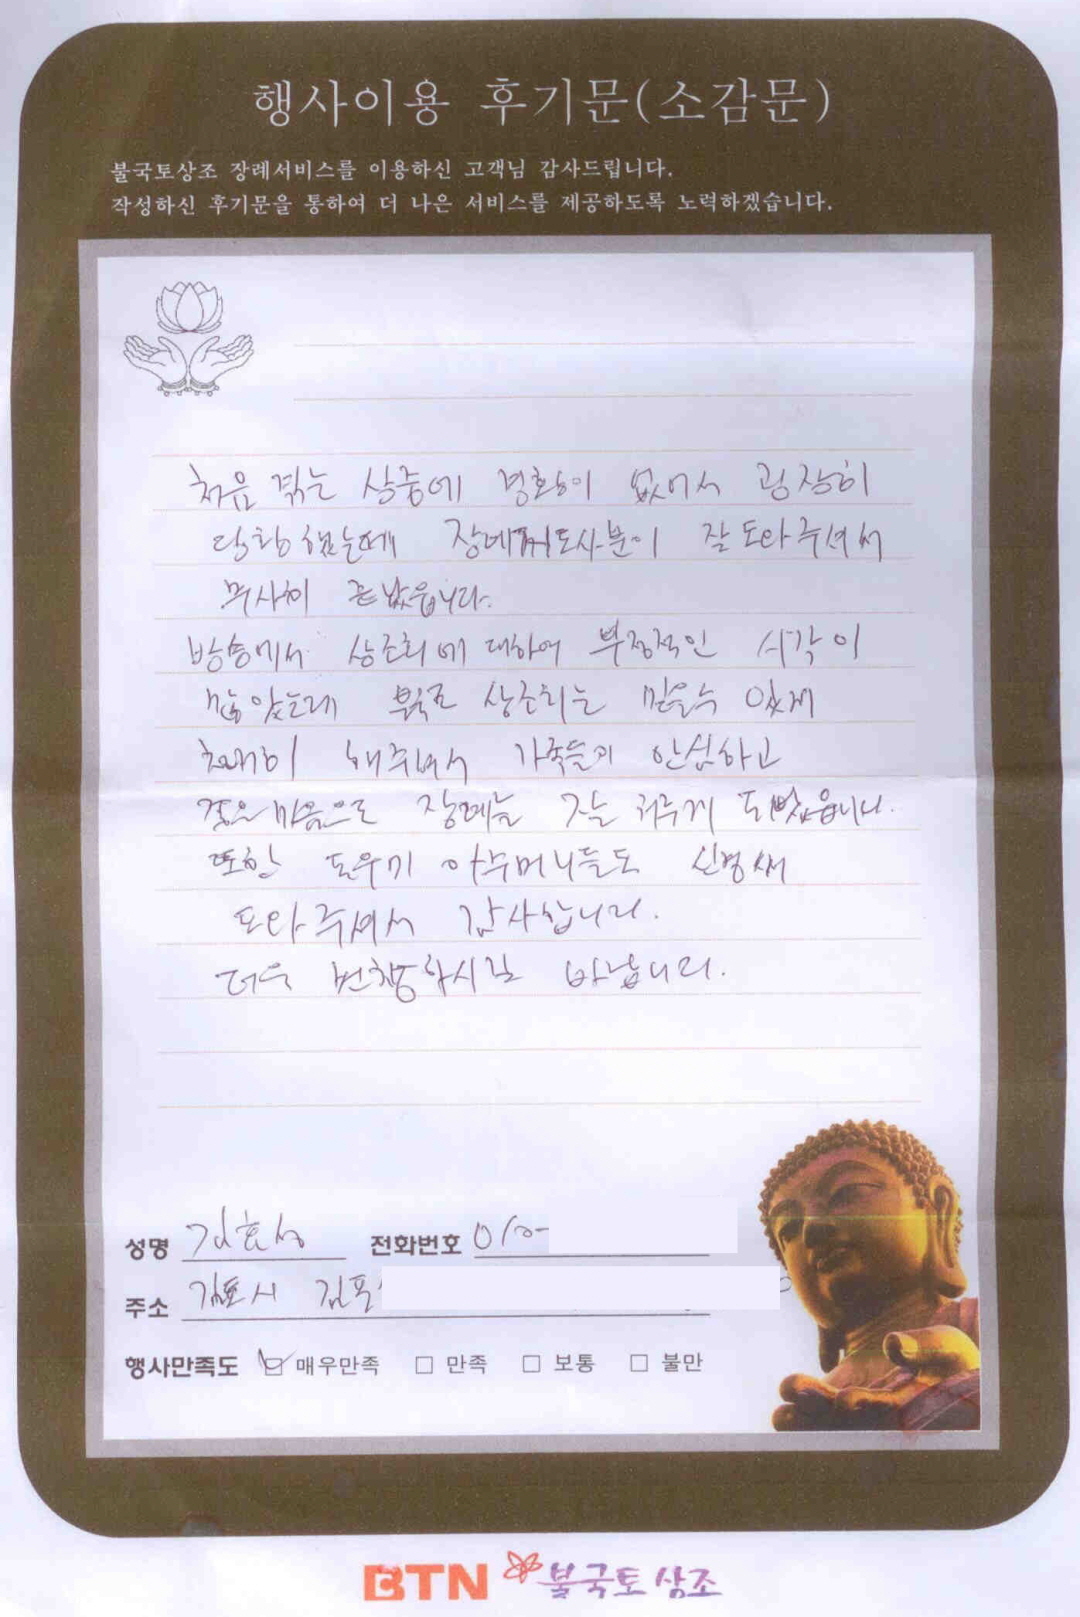 행사이용 후기문(소감문)
불국토상조 장례서비스를 이용하신 고객님 감사드립니다.
작성하신 후기문을 통하여 더 나은 서비스를 제공하도록 노력하겠습니다.
처음 겪는 상중에 경황이 없어서 굉장히
당황했는데 장례지도사분이 잘 도와주셔서
무사히 끝났읍니다.
방송에서 상조회에 대하여 부정적인 시각이
많았는데 불국토 상조회는 믿을수 있게
해주셔서 가족들이 안심하고
마음으로 장례를 잘 치루게 되었읍니다.
또한 도우미 아주머니들도 신경써
도와주셔서 감사합니다.
더욱 번창하시길 바랍니다.
성명 김효성 전화번호 010-
주소 김포시 김포
행사만족도 ☑ 매우만족 □ 만족 □ 보통 □ 불만
BTN 불국토상조